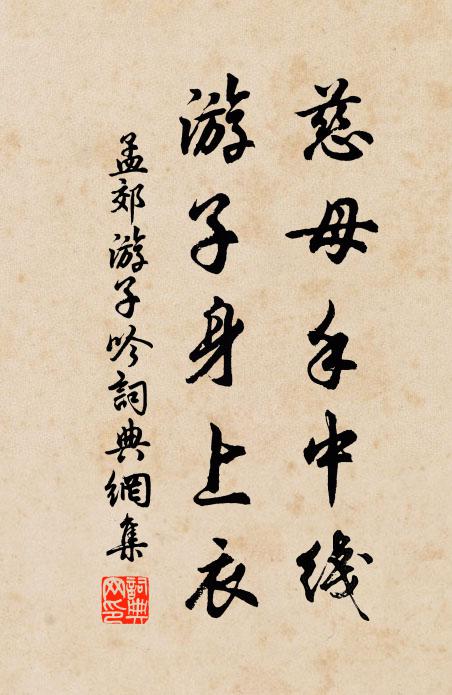 慈母手中线
游子身上衣
孟郊游子吟詞典網集
詞典網印